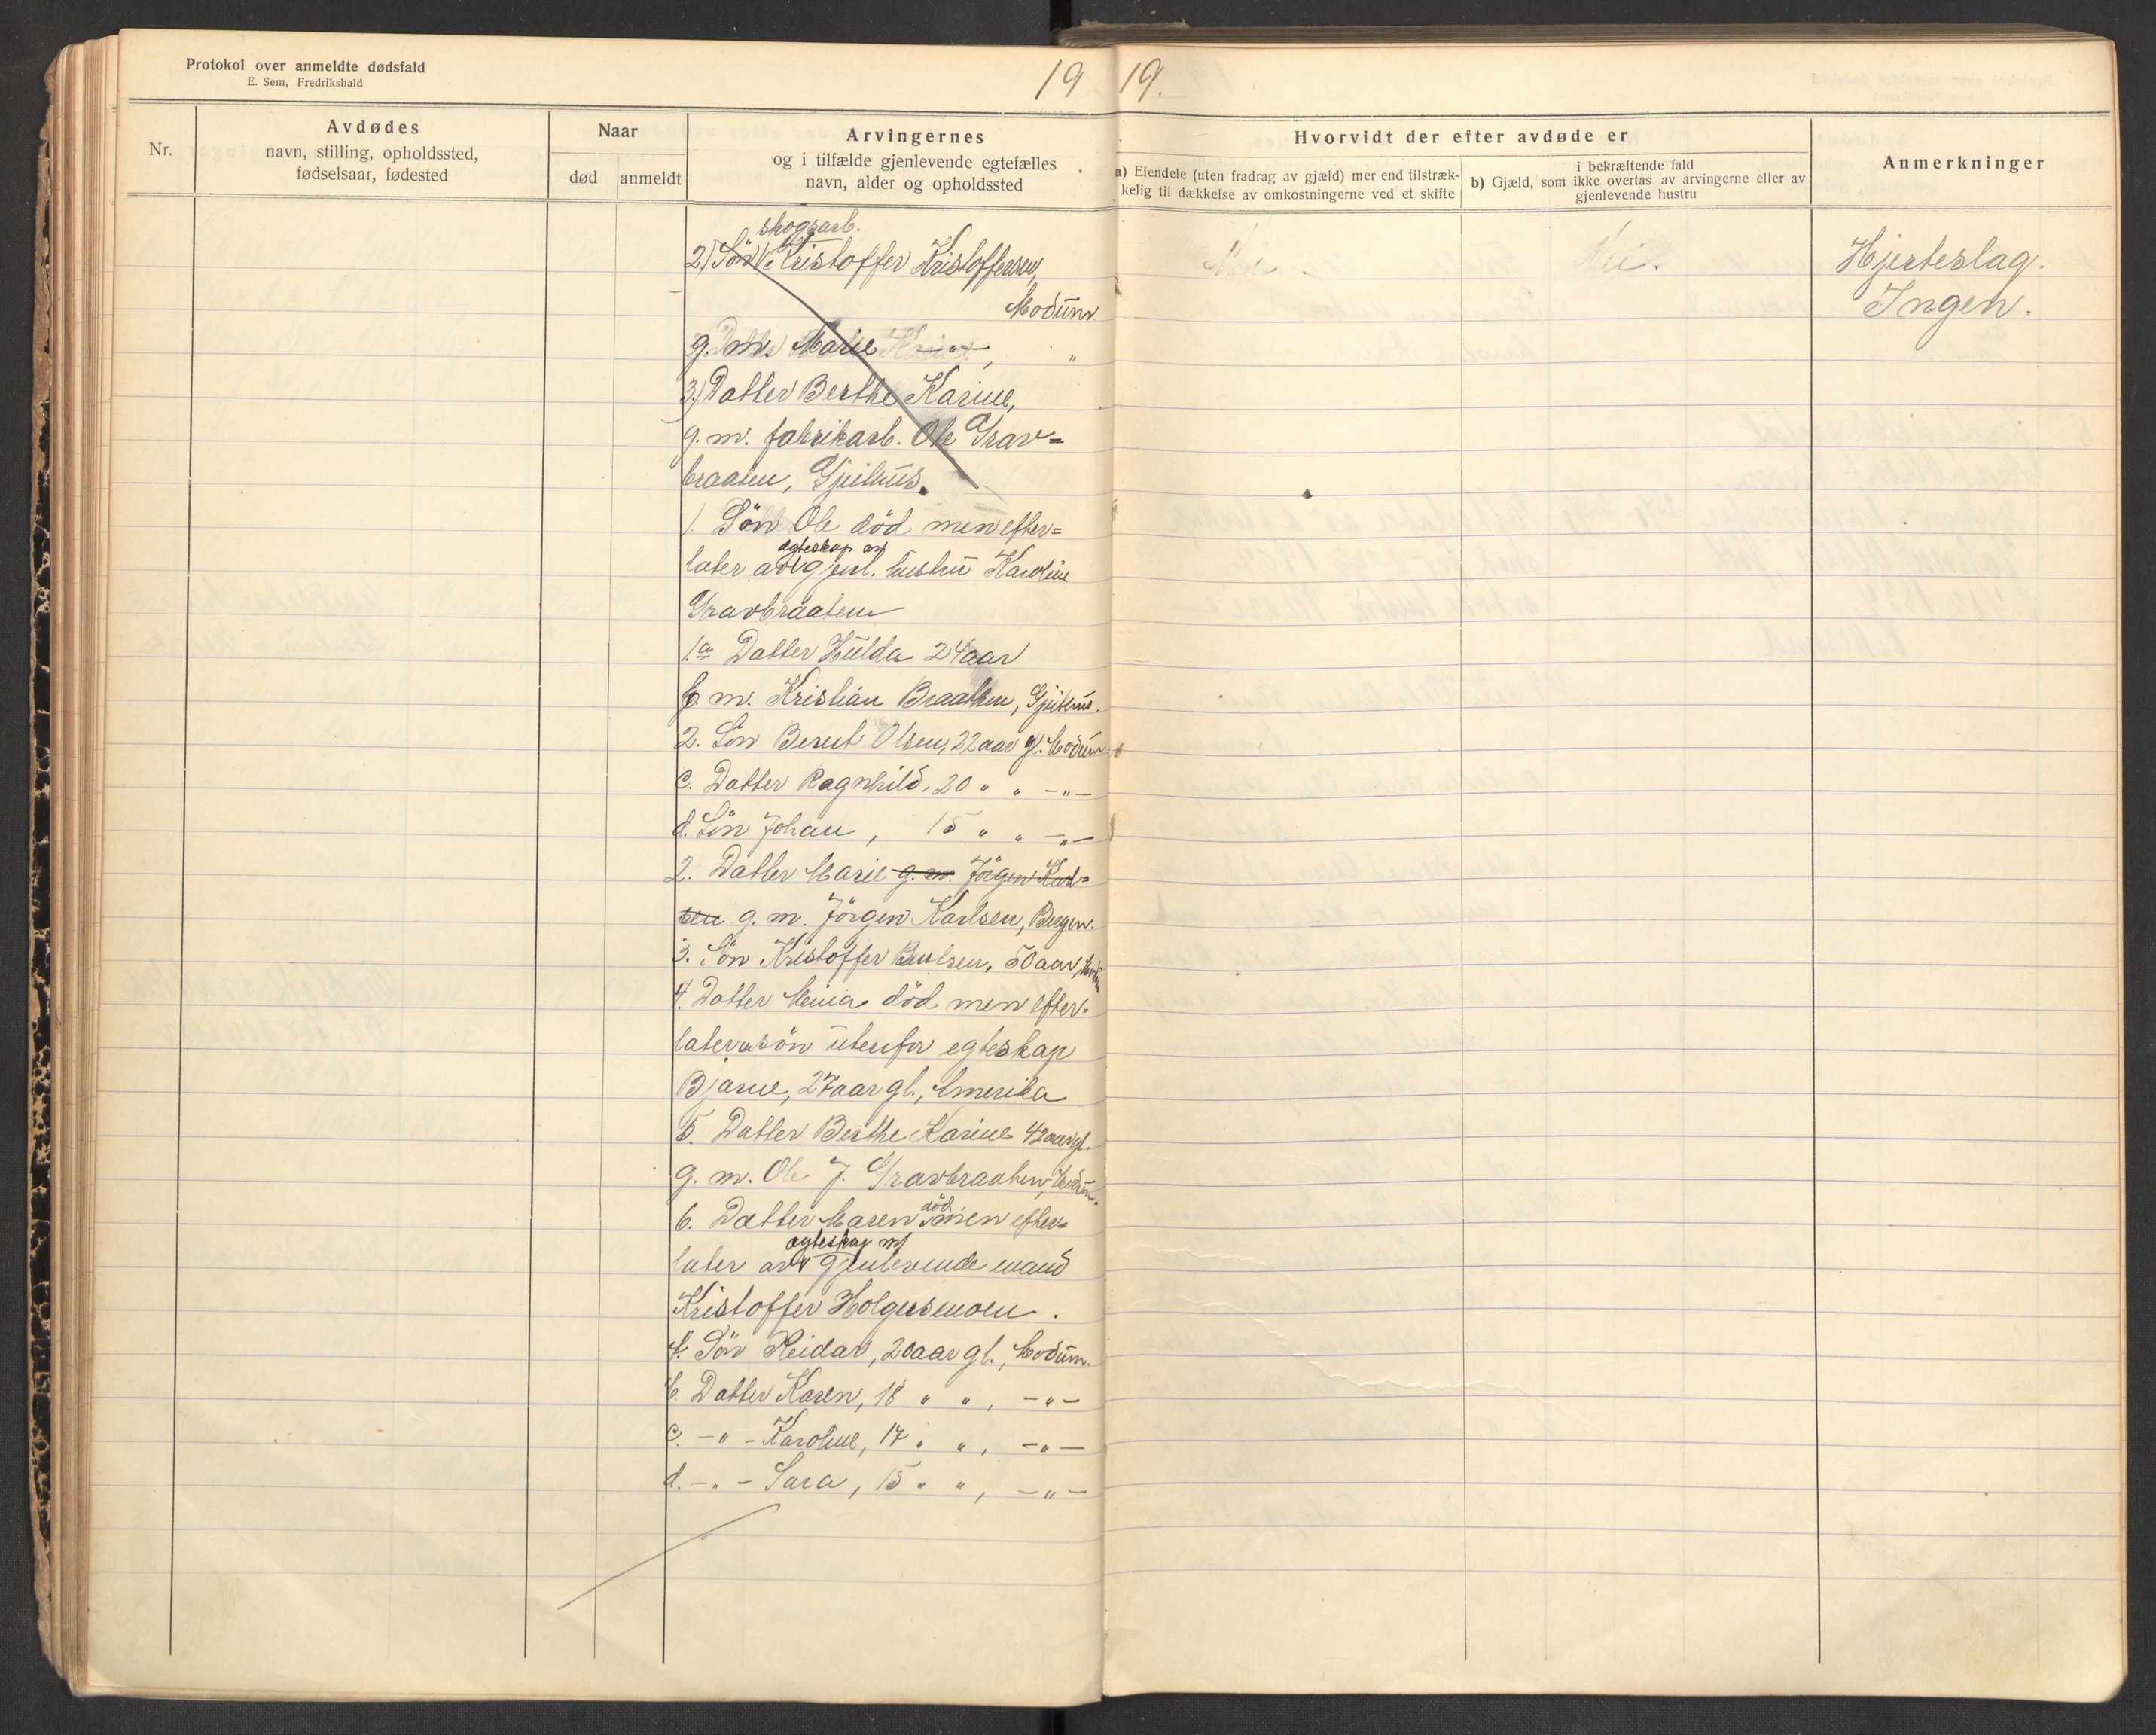 Protokol over anmeldte dødsfald
E. Sem, Fredrikshald
19 19.
Nr.
Avdødes
navn, stilling, opholdssted,
fødselsaar, fødested
Naar
død anmeldt
Arvingernes
og i tilfælde gjenlevende egtefælles
navn, alder og opholdssted
Hvorvidt der efter avdøde er
a) Eiendele (uten fradrag av gjæld) mer end tilstræk-
kelig til dækkelse av omkostningerne ved et skifte
i bekræftende fald
b) Gjæld, som ikke overtas av arvingerne eller av
gjenlevende hustru
Anmerkninger
skogsarb.
2) Sön Kristoffer Kristoffersen,
Modum
g. m. Marie "
3) Datter Berthe Karine,
g. m. fabrikarb. Ole Grav=
braaten, Gjeithus.
1. Sön Ole död men efter=
egteskap m/
later av gjenl. hustru Karoline
Gravbraaten
1.a Datter Hulda 24 aar
g. m. Kristian Braathen, Gjeithus.
2. Sön Berent Olsen, 22 aar gl. Modum
c. Datter Ragnhild, 20 " " -"-
d. Sön Johan, 15 " " -"-
2. Datter Marie g. m. Jörgen Karl=
sen g. m. Jörgen Karlsen, Bergen.
3. Sön Kristoffer Berntsen, 50 aar, Modum
4. Datter Mina död men efter=
later sön utenfor egteskap
Bjarne, 27 aar gl., Amerika
5. Datter Berthe Karine 42 aar gl.
g. m. Ole J. Gravbraaten, Modum.
död
6. Datter Maren men efter=
egteskap m/
later av gjenlevende mand
Kristoffer Holgersmoen.
Sön Reidar, 20 aar gl., Modum.
b. Datter Karen, 18 " ", -"-
c. -"- Karoline, 17 " ", -"-
d. -"- Sara, 15 " ", -"-
Nei.
Nei.
Hjerteslag.
Ingen.